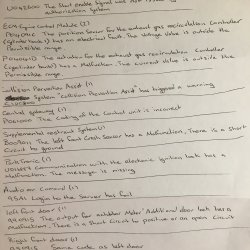 U042200 The Start enable signal was not
authorization System
ECM-Engine Control Module (2)
The position Sensor for the exhaust gas recirculation Controller
has an electrical fault. The voltage value is outside the
Permissible range.
The actuator for the exhaust gas recirculation Controller
has a Malfunction. The current value is outside the
Permissible range.
Collision Prevention Assist (1)
System "Collision Prevention Assist" has triggered a warning
Central gateway (1)
The coding of the Control unit is incorrect
Supplemental restraint System (1)
The left front Crash Sensor has a Malfunction. There is a Short
Circuit to ground
Parktronic (1)
Communication with the electronic ignition lock has a
Malfunction. The message is missing
Audio or Comand (1)
Login to the Server has failed
left front door (1)
The output for exterior Mirror Additional door lock has a
Malfunction. There is a Short circuit to positive or an open Circuit
Right front door (1)
Same code as left door